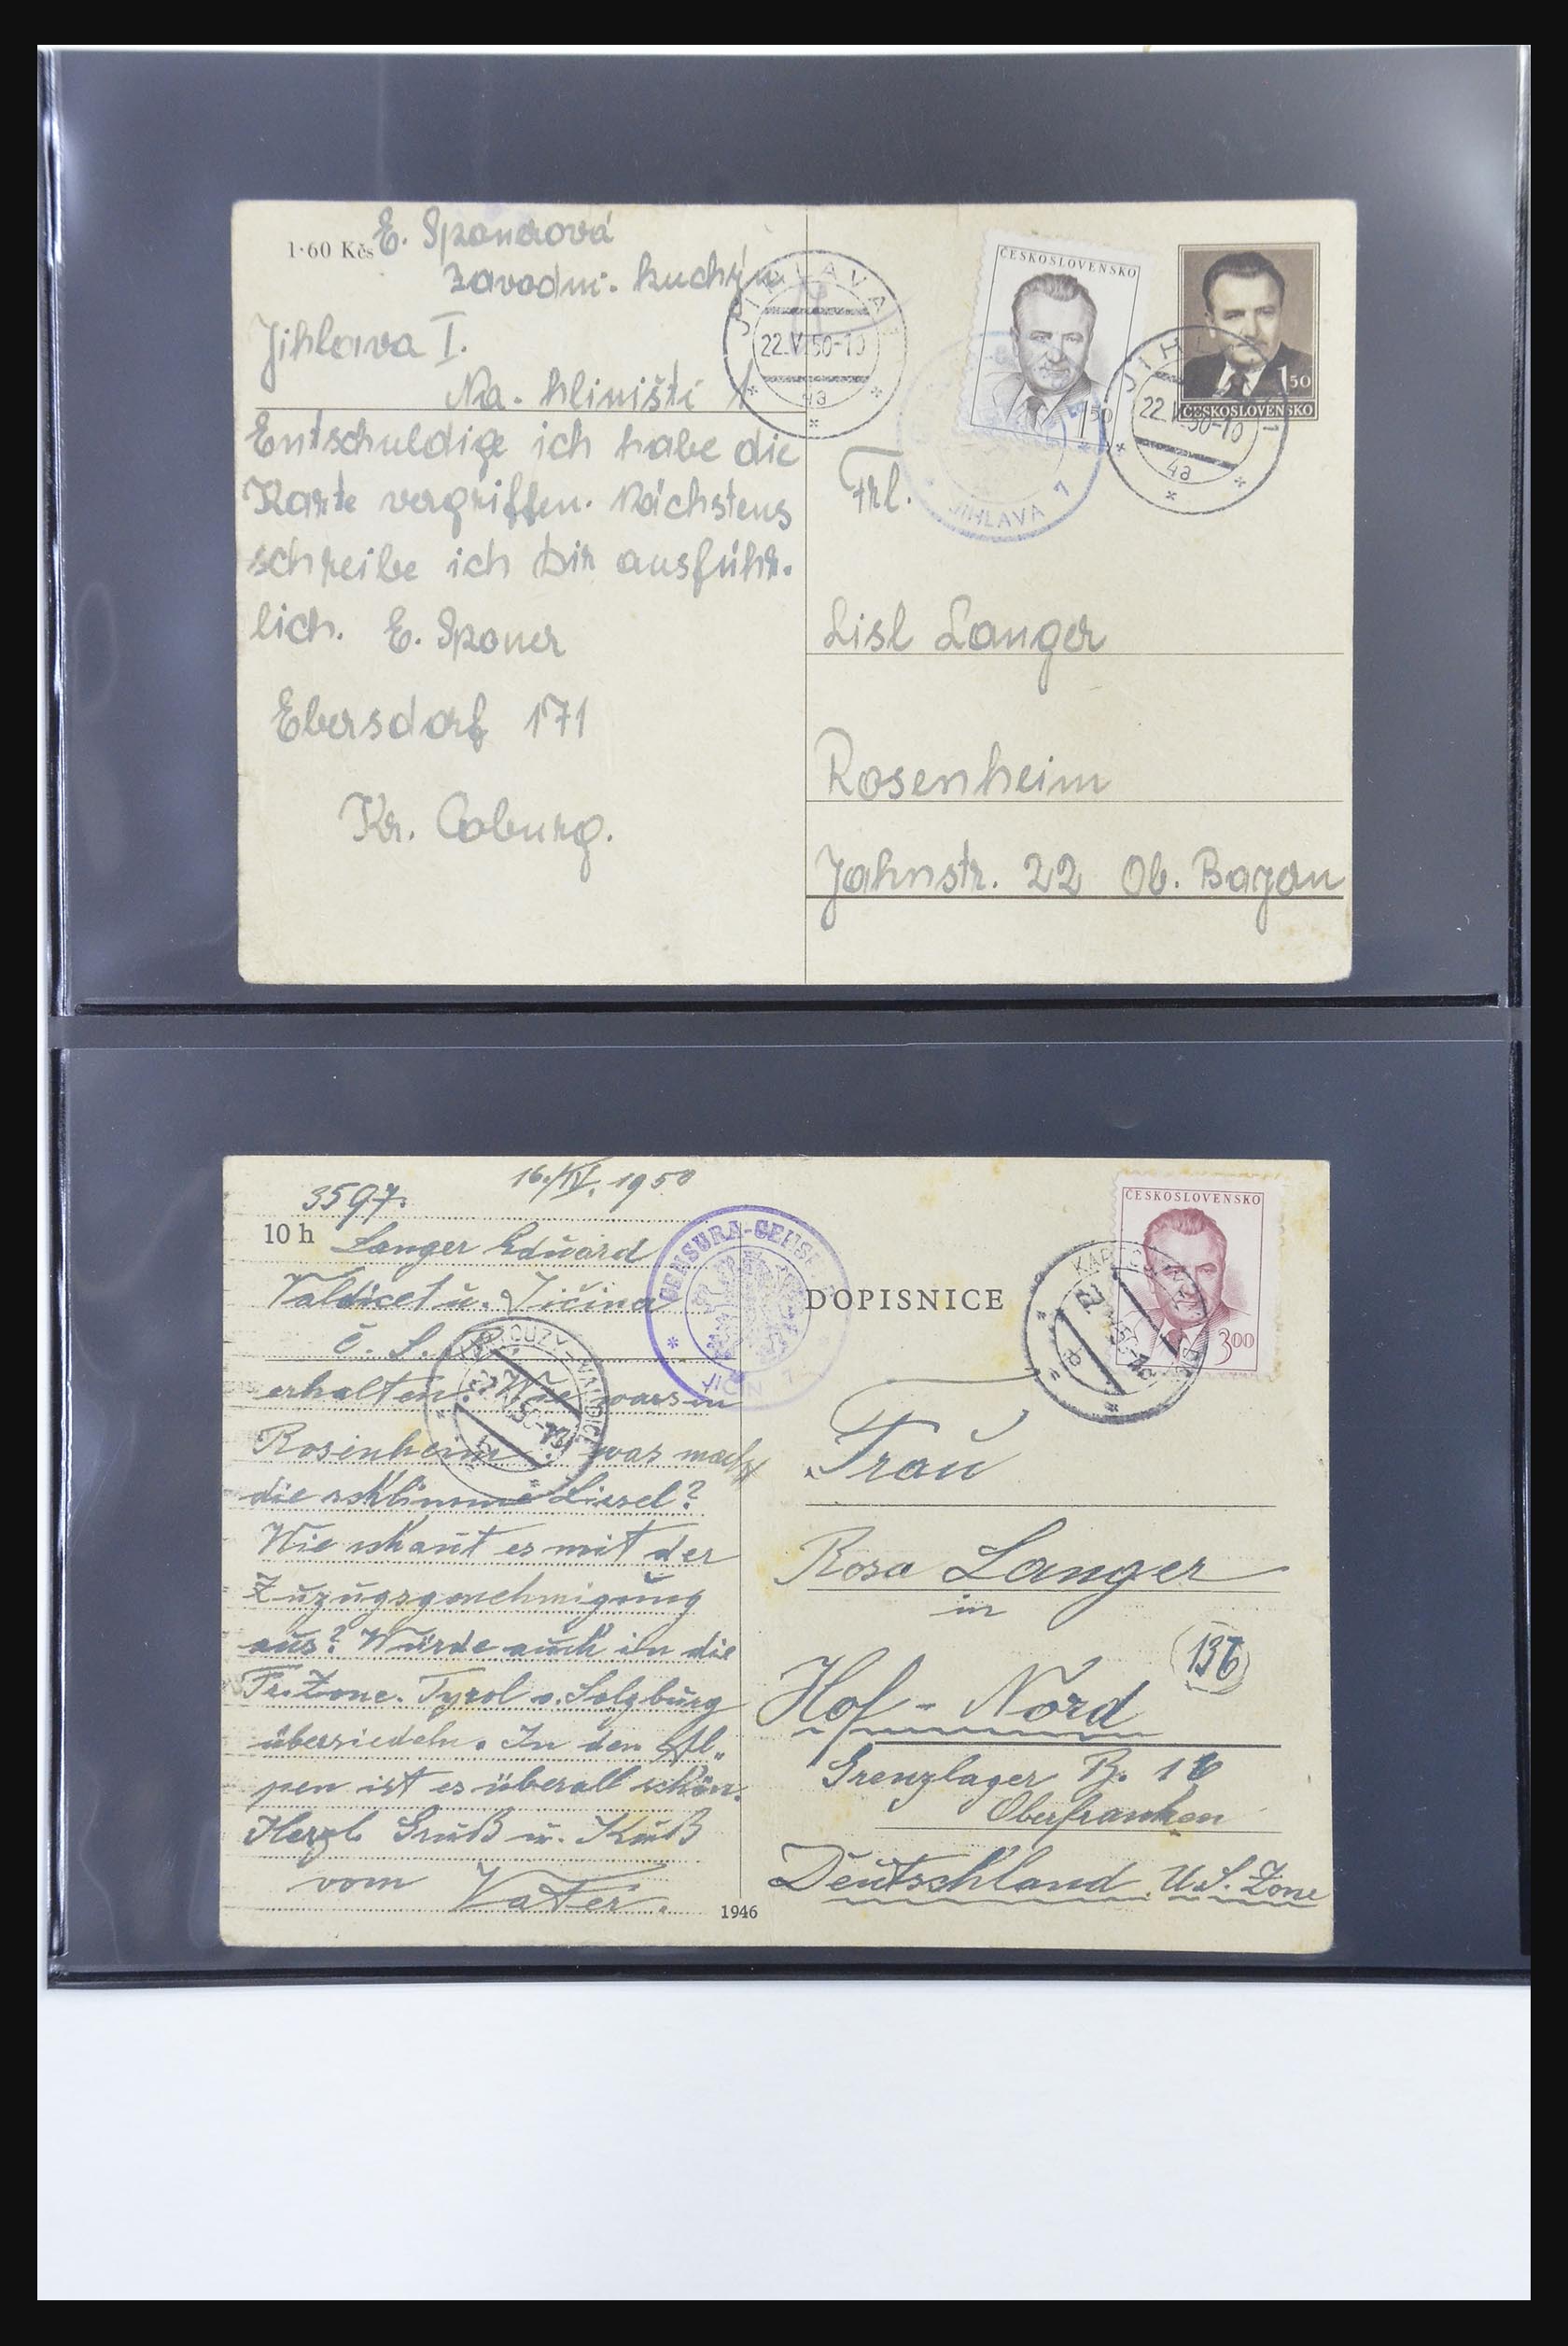 1·60 Kčs
E. Sponerová
Závodni. kuchýn
Jihlava I.
Na. hliništi 1
Entschuldige ich habe die
Karte vergriffen. Nächstens
schreibe ich Dir ausführ-
lich. E. Sponer
Ebersdorf 171
Kr. Coburg.
JIHLAVA 1
22.V.50-10
4a
ČESKOSLOVENSKO
1 50
1 50
ČESKOSLOVENSKO
JIHLAVA 1
22.V.50-10
4a
JIHLAVA 1
Frl.
Lisl Langer
Rosenheim
Jahnstr. 22 Ob. Bayan
16./IV. 1950
3597.
10 h
Langer Eduard
Valdice1 u. Jičina
Č. S. R.
erhalten. Wie wars in
Rosenheim? was macht
die schlimme Liesel?
Wie schaut es mit der
Zuzugsgenehmigung
aus? Würde auch in die
Fr. Zone. Tyrol o. Salzburg
übersiedeln. In den Al„
pen ist es überall schön.
Herzl. Gruß u. Kuß
vom Vater.
1946
CENSURA-CENS
JIČÍN
DOPISNICE
ČESKOSLOVENSKO
3 00
Frau
Rosa Langer
in
136
Hof - Nord
Grenzlager B. 16
Oberfranken
Deutschland. U.S. Zone